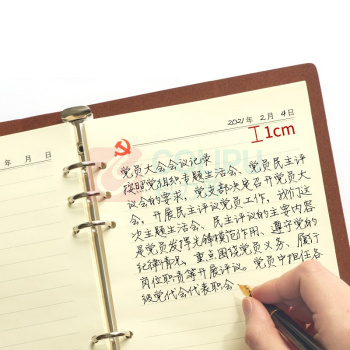 年 月 日
2021年 2月 4日
1cm
党员大会会议记录
按照党组织专题生活会、党员民主评
议会的要求，党支部决定召开党员大
会，开展民主评议党员工作，我们这
次主题生活会、民主评议的主要内容
是党员发挥先锋模范作用、遵守党的
纪律情况，重点围绕党员义务、履行
岗位职责等开展评议。党员中担任各
级党代会代表职会